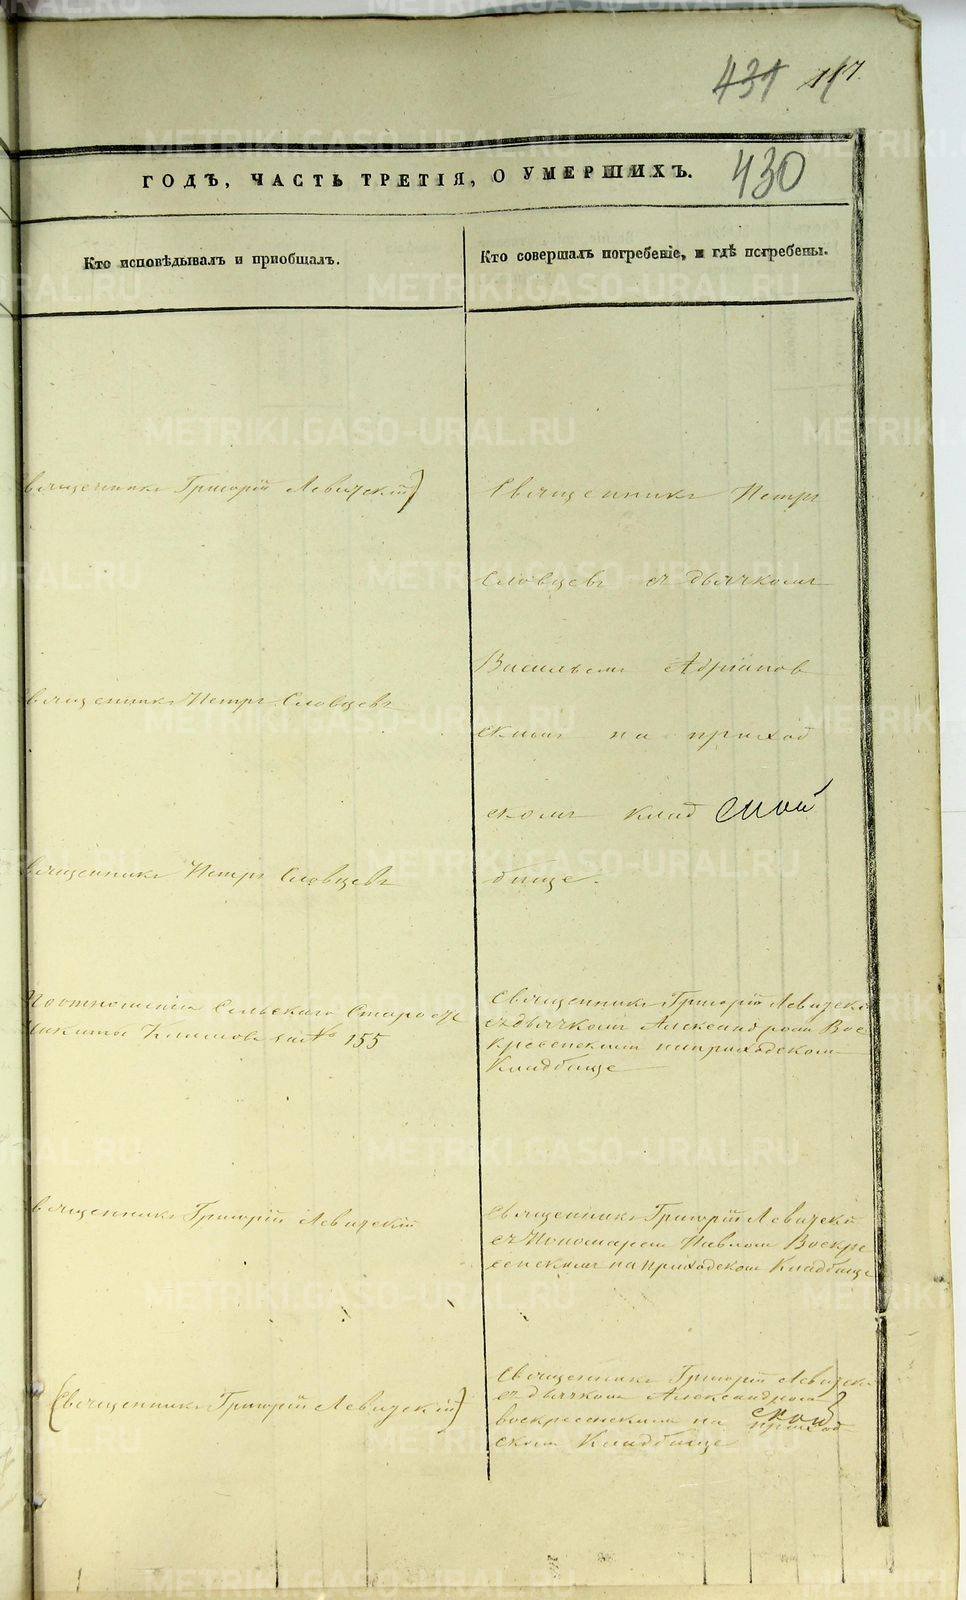 431 117.
430
ГОДЪ, ЧАСТЬ ТРЕТІЯ, О УМЕРШИХЪ.
Кто исповѣдывалъ и пріобщалъ.
Кто совершалъ погребеніе, и гдѣ погребены.
вященникъ Григорій Левицкій)
Священникъ Петръ
Словцевъ съ дьячкомъ
Васильемъ Адріанов
скимъ на приход
скомъ клад
бище.
вященникъ Петръ Словцевъ
вященникъ Петръ Словцевъ
По отношенію Сельскаго Старосты
Никиты № 155
Священникъ Григорій Левицкій
съ дьячкомъ Александромъ Вос
кресенскимъ на приходскомъ
Кладбище
вященникъ Григорій Левицкій
Священникъ Григорій Левицкій
съ Пономаремъ Павломъ Воскре
сенскимъ на приходскомъ Кладбище
(Священникъ Григорій Левицкій)
Священникъ Григорій Левицкі
съ дьячкомъ Александромъ
воскресенскимъ на приход
скомъ Кладбище
METRIKI.GASO-URAL.RU